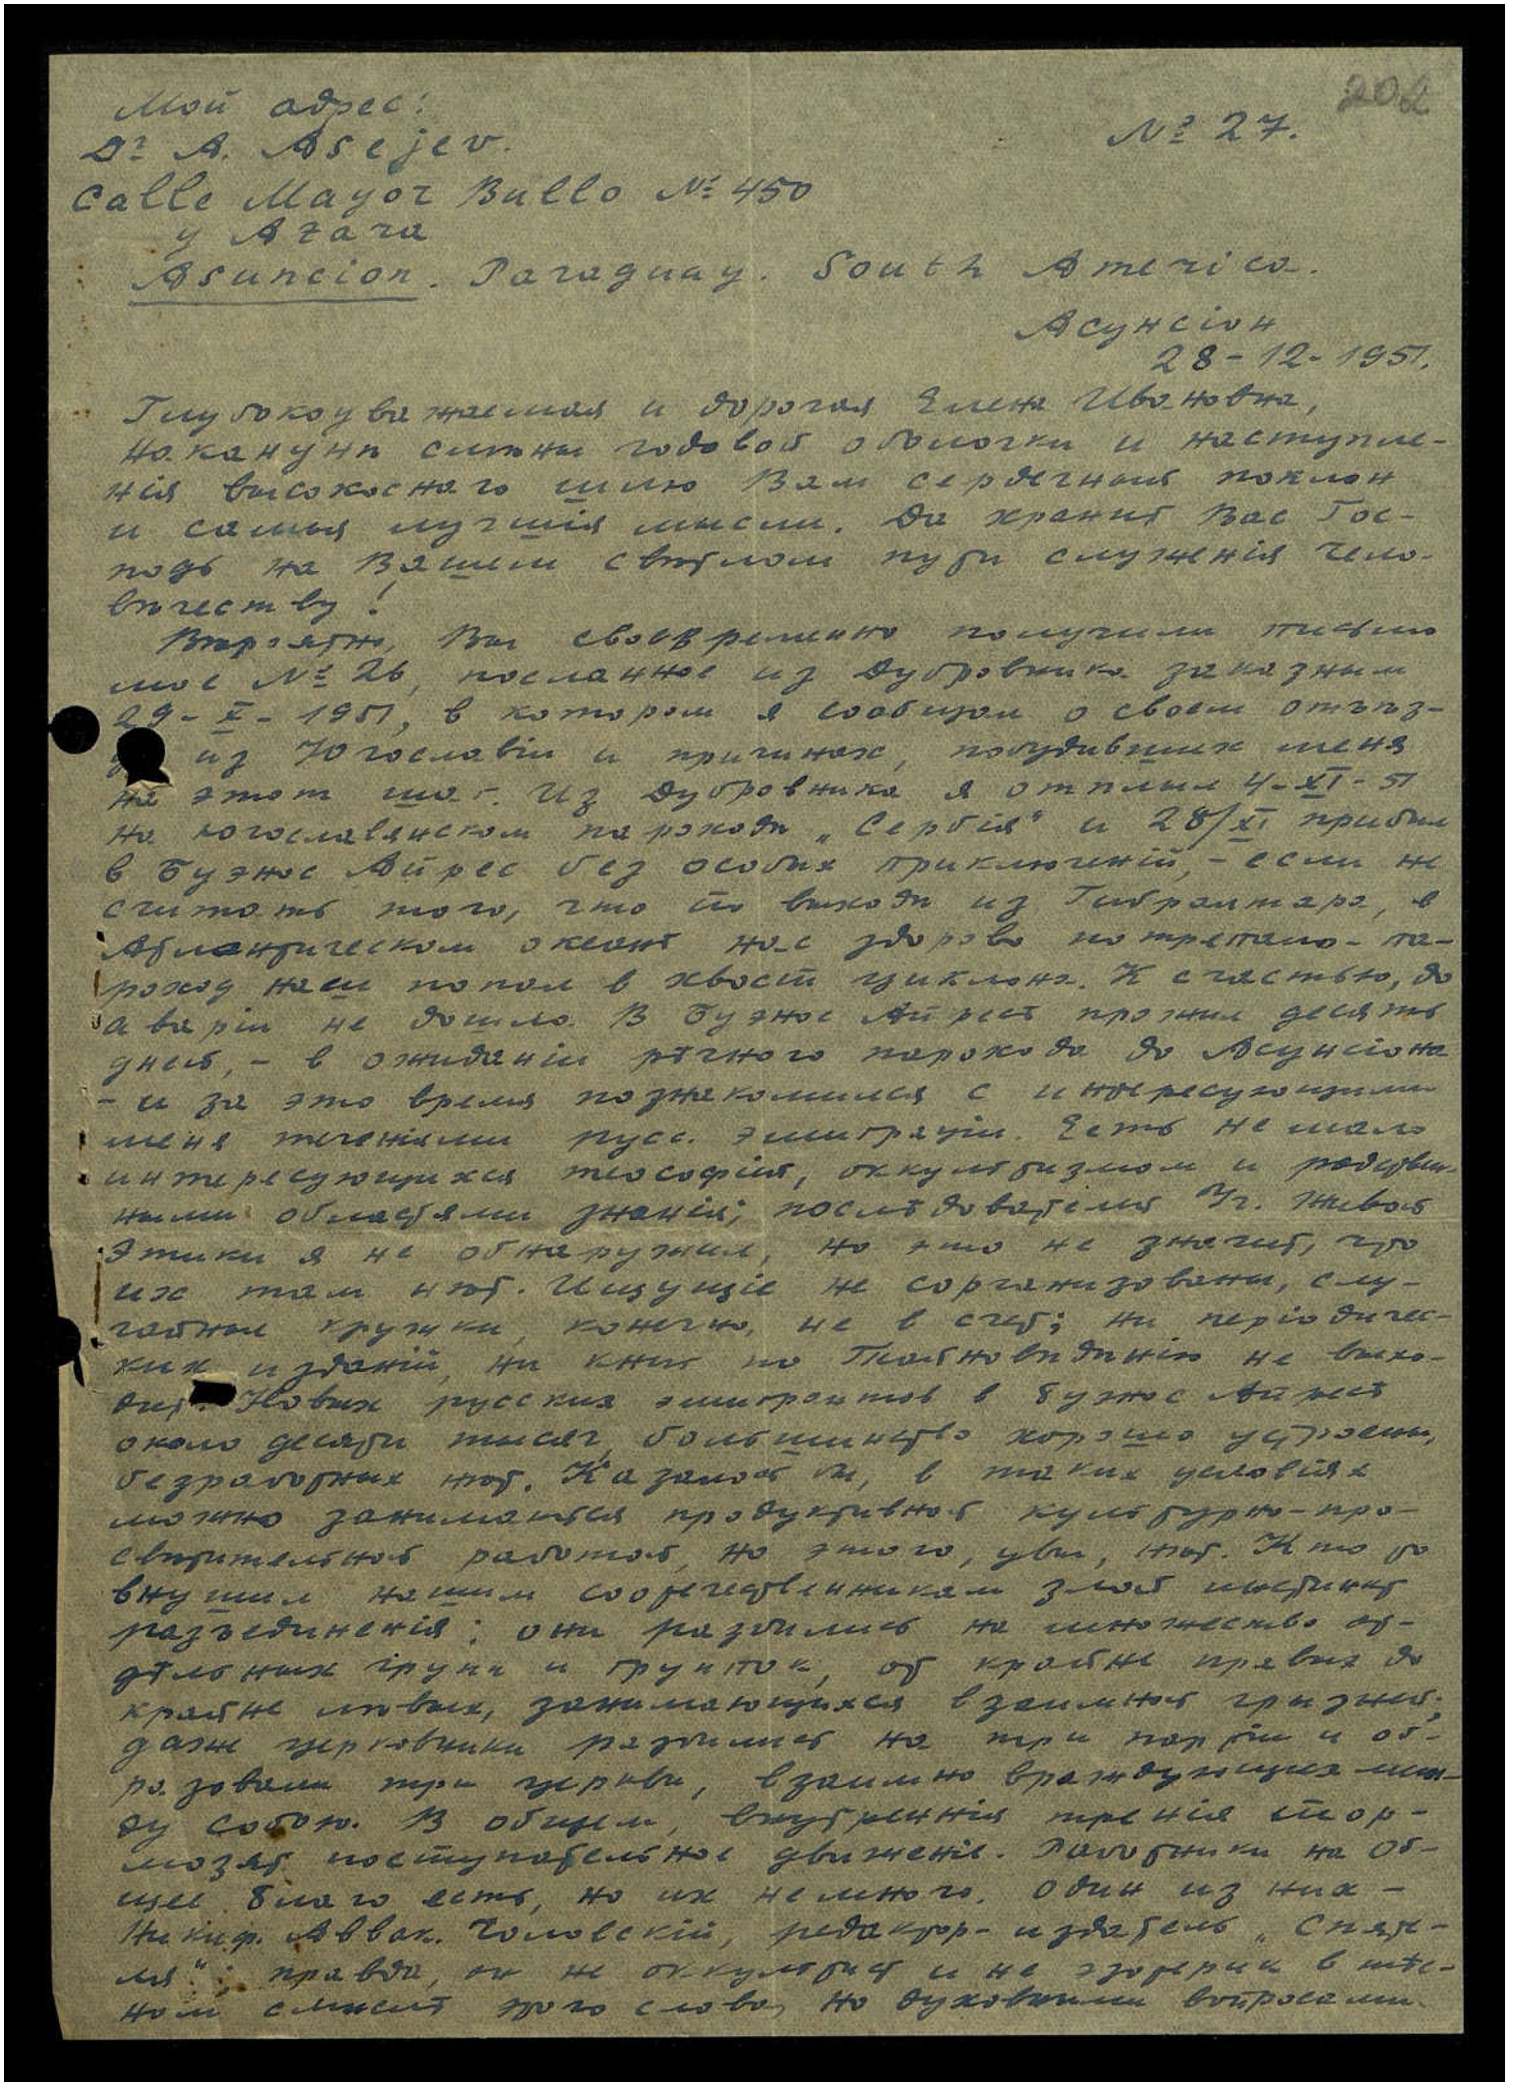 202
Мой адрес:
№ 27.
Dr A. Asejev.
Calle Mayor Bullo № 450
y Azara
Asuncion. Paraguay. South America.
Асунсіон
28-12-1951.
Глубокоуважаемая и дорогая Елена Ивановна,
наканунѣ смѣны годовой оболочки и наступле-
нія високоснаго шлю Вам сердечный поклон
и самыя лучшія мысли. Да хранит Вас Гос-
подь на Вашем свѣтлом пути служенія чело-
вѣчеству!
Вѣроятно, Вы своевременно получили письмо
мое № 26, посланное из Дубровника заказным
29-X-1951, в котором я сообщал о своем отъѣз-
из Югославіи и причинах, побудивших меня
на этот шаг. Из Дубровника я отплыл 4-XI-51
на югославянском пароходѣ „Сербія" и 28/XI прибыл
в Буэнос Айрес без особых приключеній, - если не
считать того, что по выходѣ из Гибралтара, в
Атлантическом океанѣ нас здорово потрепало - па-
роход наш попал в хвост циклона. К счастью, до
аваріи не дошло. В Буэнос Айресѣ прожил десять
дней, - в ожиданіи рѣчного парохода до Асунсіона
- и за это время познакомился с интересующими
меня теченіями русс. эмиграціи. Есть не мало
интересующихся теософіей, оккультизмом и родствен-
ными областями знанія; послѣдователей Уч. Живой
Этики я не обнаружил, но это не значит, что
их там нѣт. Ищущіе не сорганизованы, слу-
чайные кружки, конечно, не в счет; ни періодичес-
ких изданій, ни книг по Тайновѣдѣнію не выхо-
дит. Новых русских эмигрантов в Буэнос Айресѣ
около десяти тысяч, большинство хорошо устроены,
безработных нѣт. Казалось бы, в таких условіях
можно заниматься продуктивной культурно-про-
свѣтительной работой, но этого, увы, нѣт. Кто то
внушил нашим соотечественникам злой инстинкт
разъединенія: они разбились на множество от-
дѣльных групп и группок, от крайне правых до
крайне лѣвых, занимающихся взаимной грызней;
даже церковники разбились на три партіи и об-
разовали три церкви, взаимно враждующих меж-
ду собою. В общем, внутреннія тренія тор-
мозят поступательное движеніе. Работники на Об-
щее Благо есть, но их немного. Один из них -
Никиф. Аввак. Чоловскій, редактор-издатель „Сѣяте-
ля"; правда, он не оккультист и не эзотерик в тѣс-
ном смыслѣ этого слова, но духовными вопросами